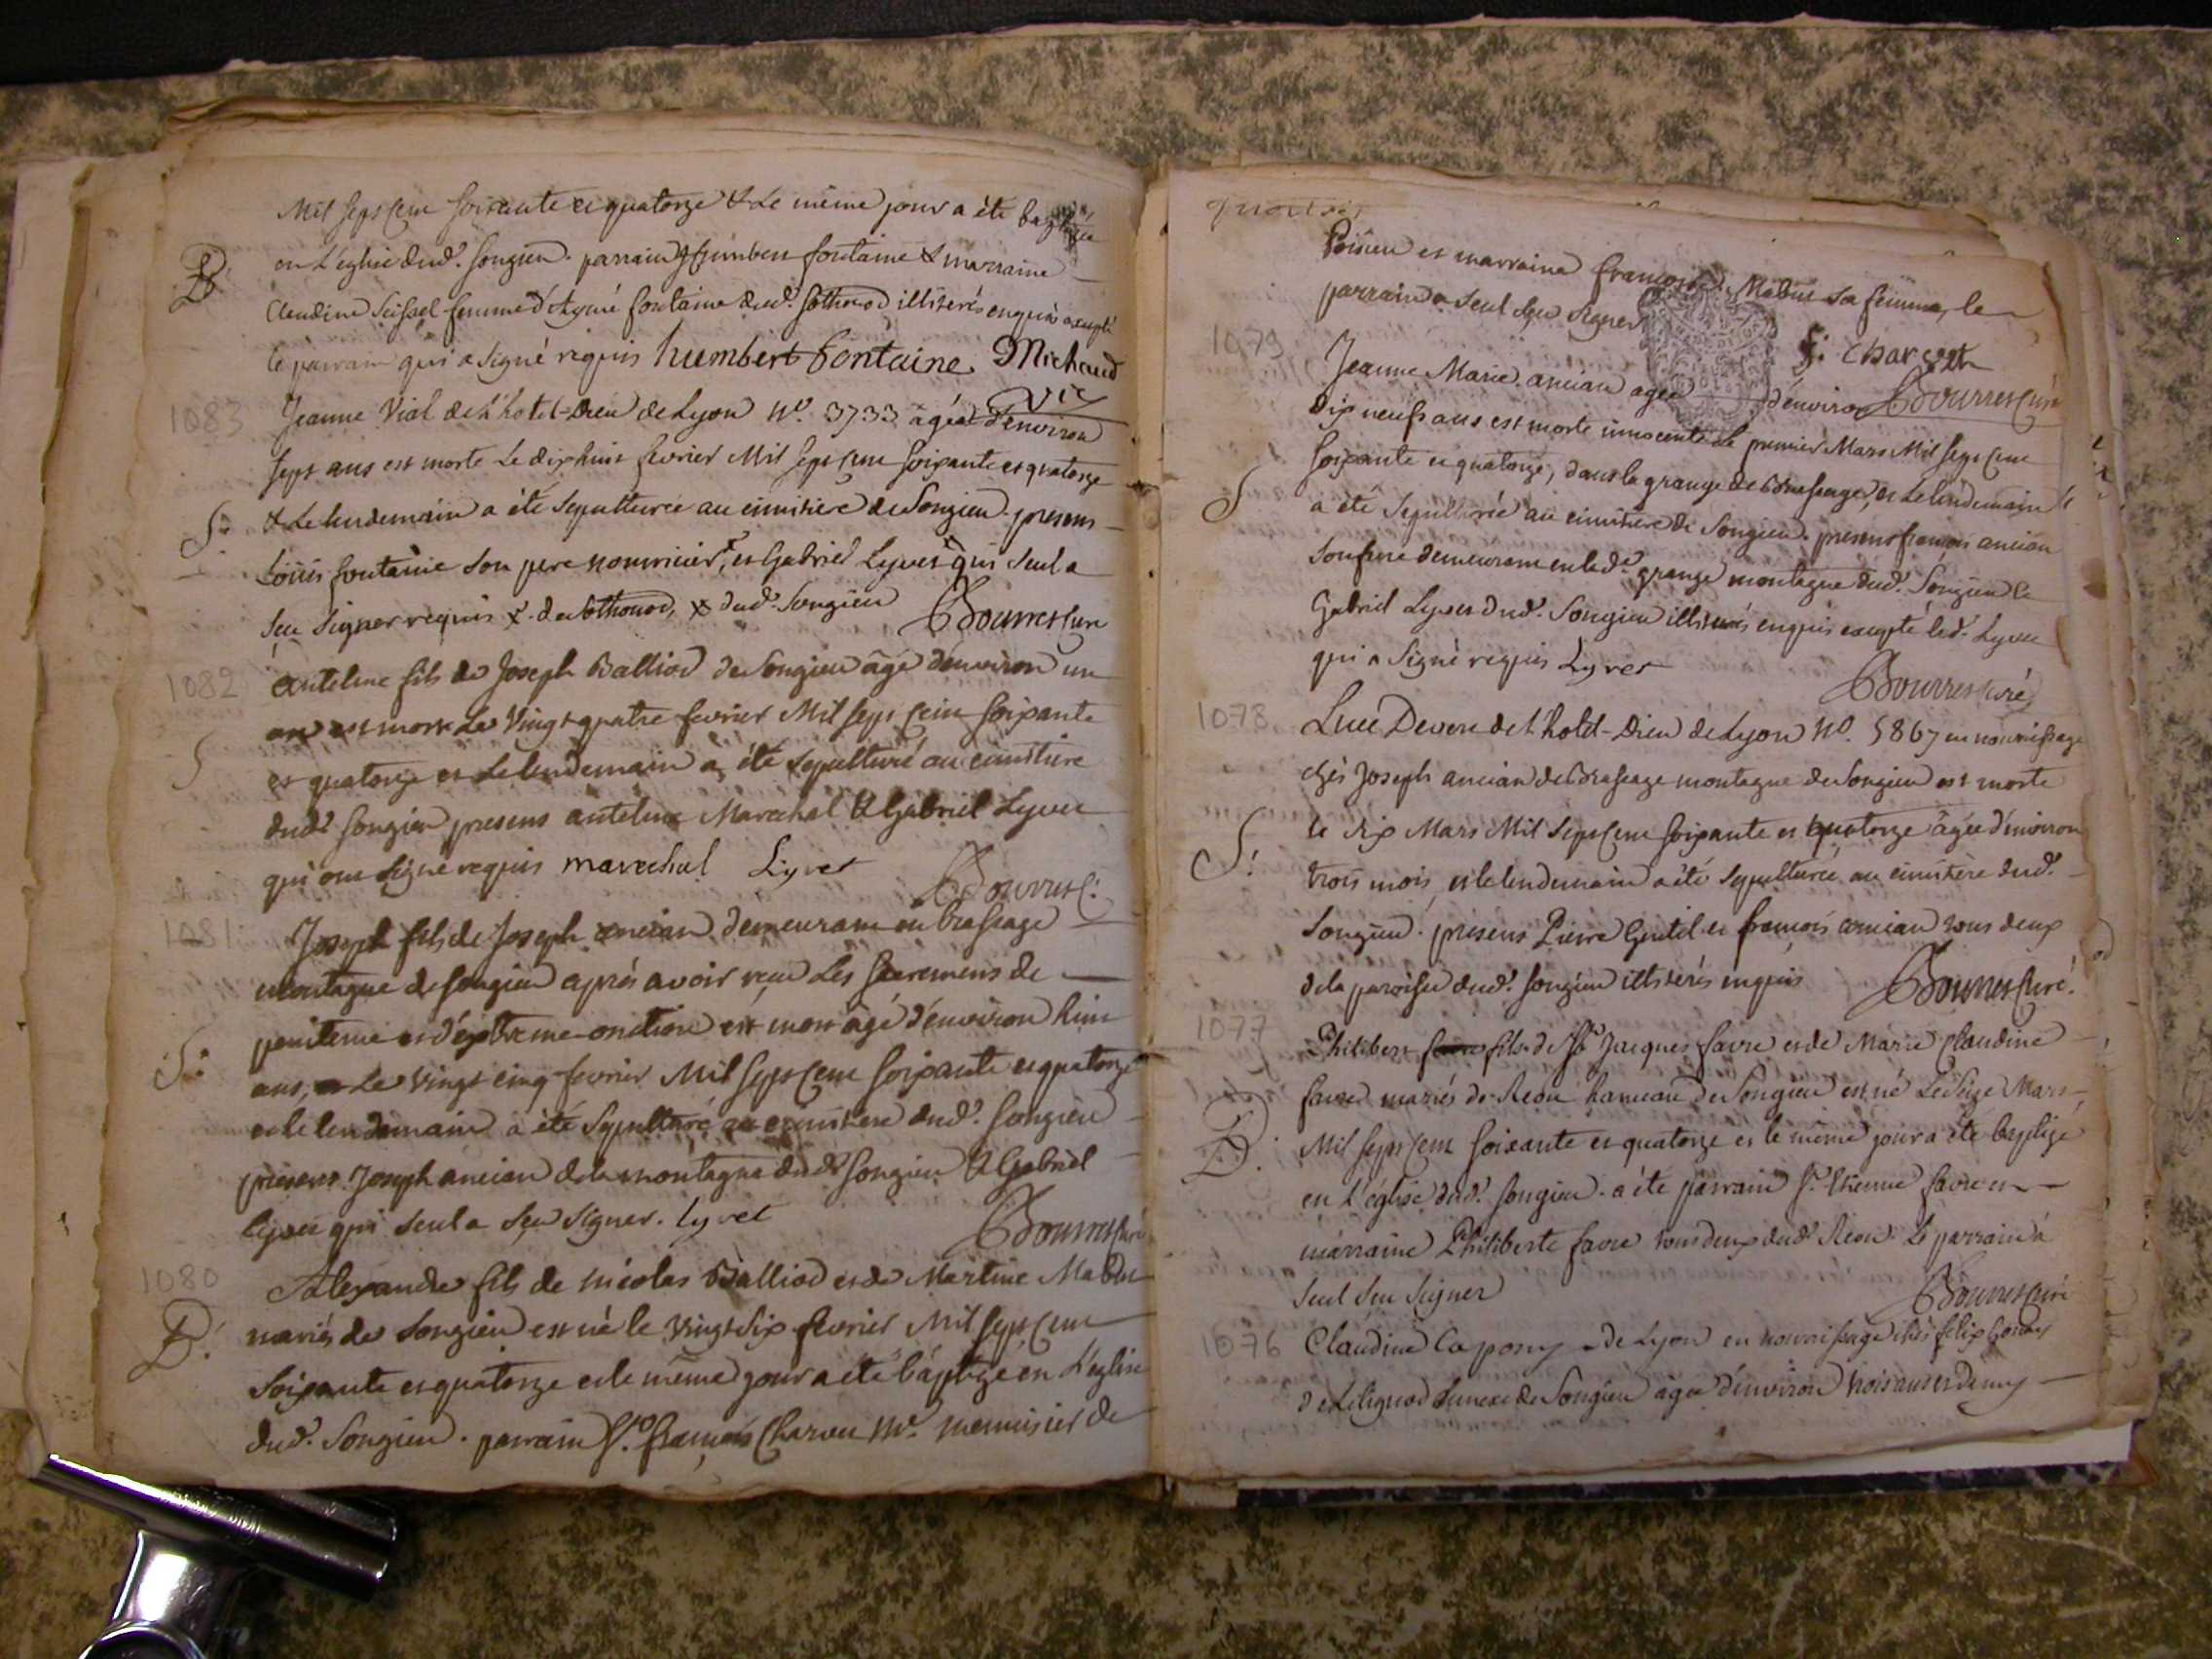 Mil sept cent soixante et quatorze & le même jour a été baptisée
B. en l'eglise dud. songieu. parrain humbert fontaine & marraine
Claudine Seissel femme d'Aymé fontaine dud. sothonod illiterés enquis excepté
le parrain qui a signé requis humbert fontaine Michaud
vic
1083 Jeanne Vial de l'hotel-Dieu de Lyon No. 3733 agée d'environ
sept ans est morte le dix huit fevrier Mil sept cent soixante et quatorze
S. & le lendemain a été sepulturée au cimitiere de Songieu. presens
Loüis fontaine son pere nourricier, x et Gabriel Lyvet x qui seul a
seu signer requis x. de Sothonod, x dud. Songieu Bourret Curé
1082 Antelme fils de Joseph Balliod de Songieu âgé d'environ un
an est mort le vingt quatre fevrier Mil sept cent soixante
S et quatorze et le lendemain a été sepulturé au cimitiere
dudt songieu presens antelme Marechal & Gabriel Lyvet
qui ont signé requis marechal Lyvet
Bourret C.
1081 Joseph fils de Joseph ancian demeurant en brassage
montagne de songieu aprés avoir reçu les sacremens de
penitence et d'extreme-onction est mort âgé d'environ huit
S. ans, le vingt cinq fevrier Mil sept cent soixante et quatorze
et le lendemain a été sepulturé au cimitiere dud. songieu
presens Joseph ancian de la montagne dudt songieu & Gabriel
lyvet qui seul a seu signer. lyvet Bourret Curé
1080 Alexandre fils de nicolas Balliod et de Martine
B. mariés de Songieu est né le vingt six fevrier Mil sept cent
soixante et quatorze et le même jour a été baptizé en l'eglise
dud. Songieu. parrain Sr. françois Charvet Me. menuisier de
Poisieu et marraine françoise sa femme, le
parrain a seul seu signer
f: Charvet
Bourret Curé
1079 Jeanne Marie ancian agée d'environ
dix neufs ans est morte innocente le premier Mars Mil sept cent
soixante et quatorze, dans la grange de brassage, et le lendemain
S a été sepulturée au cimitiere de Songieu. presens françois ancian
son frere demeurant en lad. grange montagne dud. Songieu &
Gabriel Lyvet dud. Songieu illiterés enquis excepté led. Lyvet
qui a signé requis Lyvet
Bourret curé
1078 Luce Devere de l'hotel-Dieu de Lyon No. 5867 en nourrissage
chés Joseph ancian de brassage montagne de Songieu est morte
le dix Mars Mil sept cent soixante et quatorze âgée d'environ
S. trois mois, et le lendemain a été sepulturée au cimitiere dud.
Songieu. presens Pierre Gentil et françois ancian tous deux
de la paroisse dud. songieu illiterés enquis Bourret Curé.
1077 Philibert fils de Sr Jacques favre et de Marie Claudine
favre mariés de hameau de Songieu est né le seize Mars
B. Mil sept cent soixante et quatorze et le même jour a été baptizé
en l'église dud. songieu. a été parrain Sr. Etienne favre et
marraine Philiberte favre tous deux dud. Le parrain a
seul seu signer
Bourret Curé
1076 Claudine Capony de Lyon en nourrissage chés felix
de Lilignod annexe de Songieu agée d'environ trois ans et demy